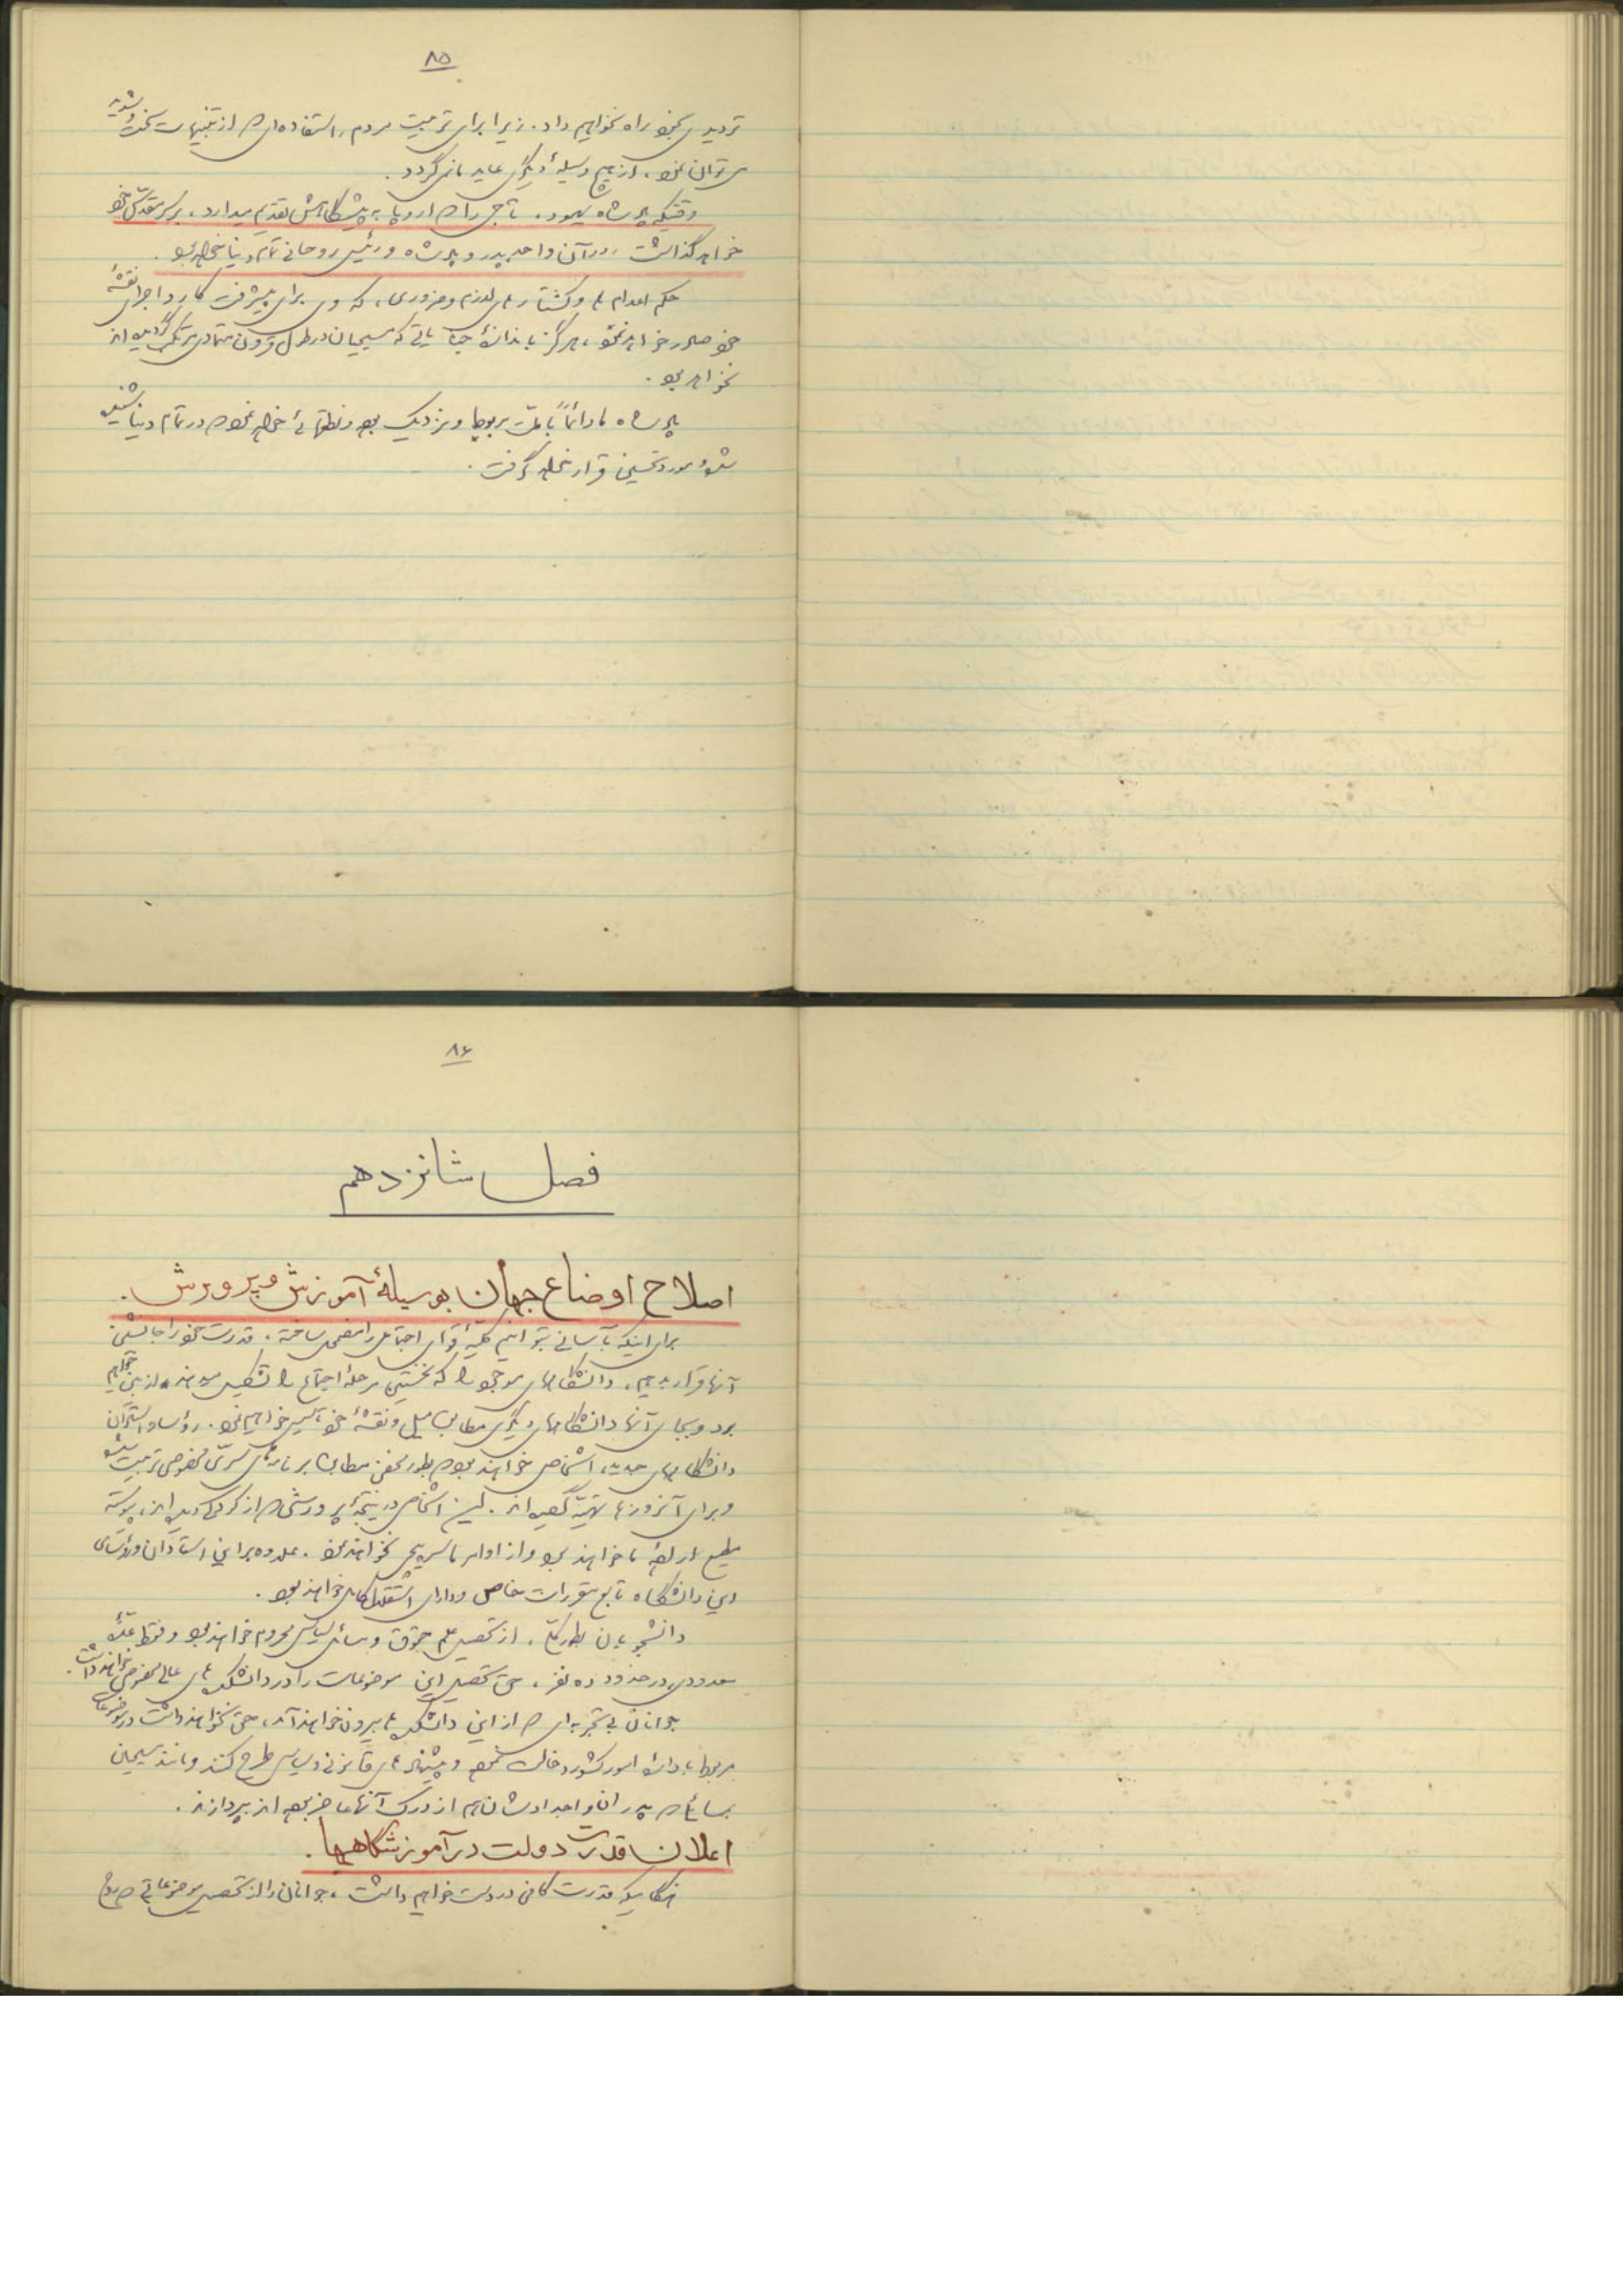 ۸۵
تردیدی بخود راه نخواهیم داد. زیرا برای تربیت مردم، استفاده‌ای که از تنبیهات سخت و شدید
می‌توان نمود، از هیچ وسیلهٔ دیگری عاید ما نمی‌گردد.
وقتیکه پادشاه یهود، تاجی را که اروپا به پیشگاهش تقدیم میدارد، بر سر مقدس خود
خواهد گذاشت، در آن واحد پدر و پادشاه و رئیس روحانی تمام دنیا خواهد بود.
حکم اعدام‌ها و کشتارهای لازم و ضروری، که وی برای پیشرفت کار و اجرای نقشهٔ
خود صادر خواهد نمود، هرگز باندازهٔ جنایاتی که مسیحیان در طول قرون متمادی مرتکب گردیده‌اند
نخواهد بود.
پادشاه ما دائماً با ملت مربوط و نزدیک بوده و نطقهائی خواهد نمود که در تمام دنیا شنیده
شده و مورد تحسین قرار خواهد گرفت.
۸۶
فصل شانزدهم
اصلاح اوضاع جهان بوسیلهٔ آموزش و پرورش.
برای اینکه بآسانی بتوانیم کلیهٔ قوای اجتماعی را مضمحل ساخته، قدرت خود را جانشین
آنها قرار بدهیم، دانشگاههای موجود را که نخستین مرحلهٔ اجتماع را تشکیل میدهند، از بین خواهیم
برد و بجای آنها دانشگاههای دیگری مطابق میل و نقشهٔ خود تأسیس خواهیم نمود. رؤسا و استادان
دانشگاههای جدید، اشخاصی خواهند بود که بطور مخفی مطابق برنامه‌های سرّی مخصوصی تربیت شده
و برای آنروزها تهیّه گردیده‌اند. این اشخاص در نتیجهٔ پرورشی که از کودکی دیده‌اند، پیوسته
مطیع ارادهٔ ما خواهند بود و از اوامر ما سرپیچی نخواهند نمود. علاوه بر این استادان و رؤسای
این دانشگاه تابع مقررات خاص و دارای استقلال کامل خواهند بود.
دانشجویان بطور کلی، از تحصیل علم حقوق و مسائل سیاسی محروم خواهند بود و فقط عدّهٔ
معدودی در حدود ده نفر، حق تحصیل این موضوعات را در دانشکده‌های عالی مخصوص خواهند داشت.
جوانان بی‌تجربه‌ای که از این دانشکده‌ها بیرون خواهند آمد، حق نخواهند داشت در موضوعات
مربوط باداره امور کشور دخالت نموده و پیشنهادهای قانونی و سیاسی طرح کنند و مانند مسیحیان
بمسائلی که پدران و اجدادشان هم از درک آنها عاجز بوده‌اند بپردازند.
اعلان قدرت دولت در آموزشگاهها.
هنگامیکه قدرت کافی در دست خواهیم داشت، جوانان را از تحصیل موضوعاتی که روح